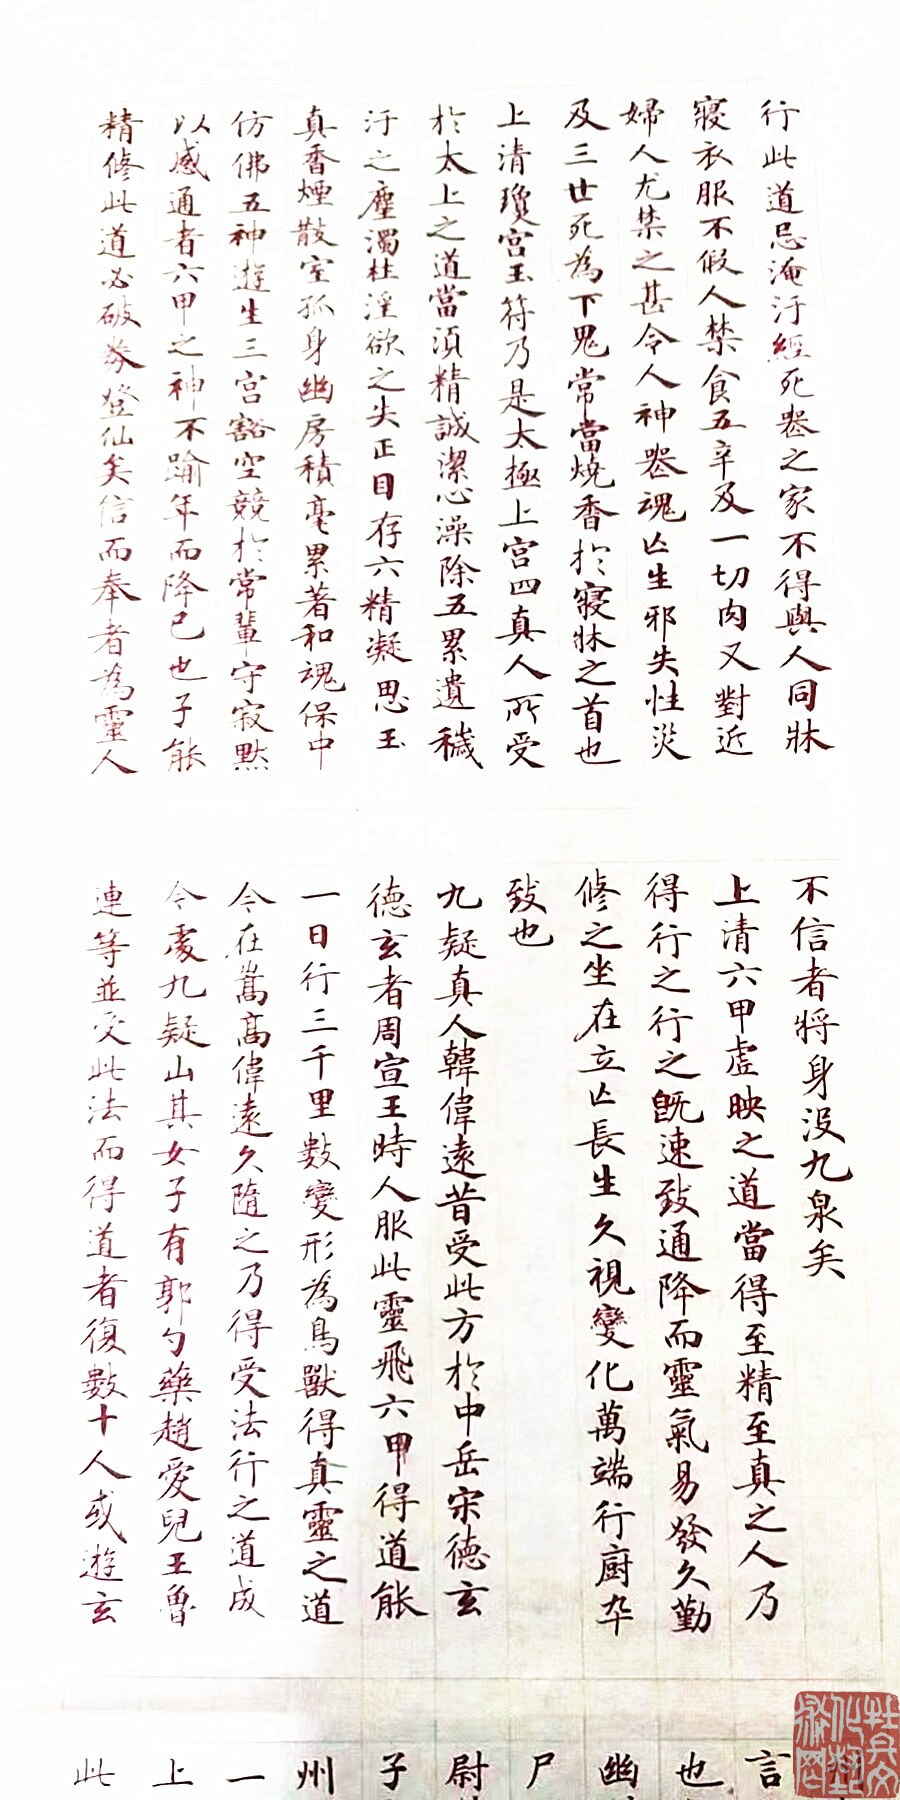 行此道忌淹汙經死喪之家不得與人同牀
寢衣服不假人禁食五辛及一切肉又對近
婦人尤禁之甚令人神喪魂亡生邪失性災
及三世死為下鬼常當燒香於寢牀之首也
上清瓊宮玉符乃是太極上宮四真人所受
於太上之道當須精誠潔心澡除五累遺穢
汙之塵濁杜淫欲之失正目存六精凝思玉
真香煙散室孤身幽房積毫累著和魂保中
仿佛五神遊生三宮豁空競於常輩守寂默
以感通者六甲之神不踰年而降已也子能
精修此道必破券登仙矣信而奉者為靈人
不信者將身沒九泉矣
上清六甲虛映之道當得至精至真之人乃
得行之行之既速致通降而靈氣易發久勤
修之坐在立亡長生久視變化萬端行廚卒
致也
九疑真人韓偉遠昔受此方於中岳宋德玄
德玄者周宣王時人服此靈飛六甲得道能
一日行三千里數變形為鳥獸得真靈之道
今在嵩高偉遠久隨之乃得受法行之道成
今處九疑山其女子有郭勺藥趙愛兒王魯
連等並受此法而得道者復數十人或遊玄
言
也
幽
尸
尉
子
州
一
上
此